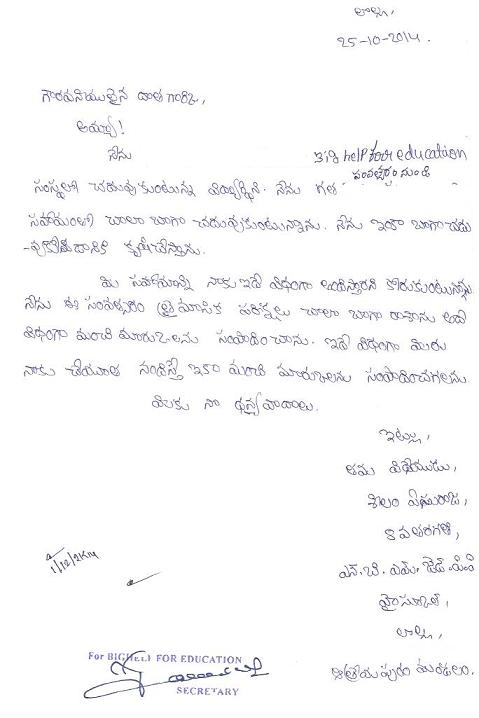 లొల్ల,
25-10-2014.
గౌరవనీయులైన దాత గారికి,
అయ్యా!
నేను Big help for education
సంస్థలో చదువుకుంటున్న విద్యార్థిని. నేను గత సంవత్సరం నుండి
సహాయంతో చాలా బాగా చదువుకుంటున్నాను. నేను ఇంకా బాగా చదు
-వుకోవడానికి కృషిచేస్తాను.
మీ సహాయాన్ని నాకు ఇదే విధంగా అందిస్తారని కోరుకుంటున్నాను
నేను ఈ సంవత్సరం త్రైమాసిక పరీక్షలు చాలా బాగా రాశాను అదే
విధంగా మంచి మార్కులను సంపాదించాను. ఇదే విధంగా మీరు
నాకు చేయూత నందిస్తే ఇంకా మంచి మార్కులను సంపాదించగలను
మీకు నా ధన్యవాదాలు.
ఇట్లు,
తమ విధేయుడు,
శీలం
8 వతరగతి,
ఎస్.బి.ఎమ్. జెడ్.పి.పి
హైస్కూల్,
లొల్ల,
ఆత్రేయపురం మండలం.
For BIGHELP FOR EDUCATION
SECRETARY